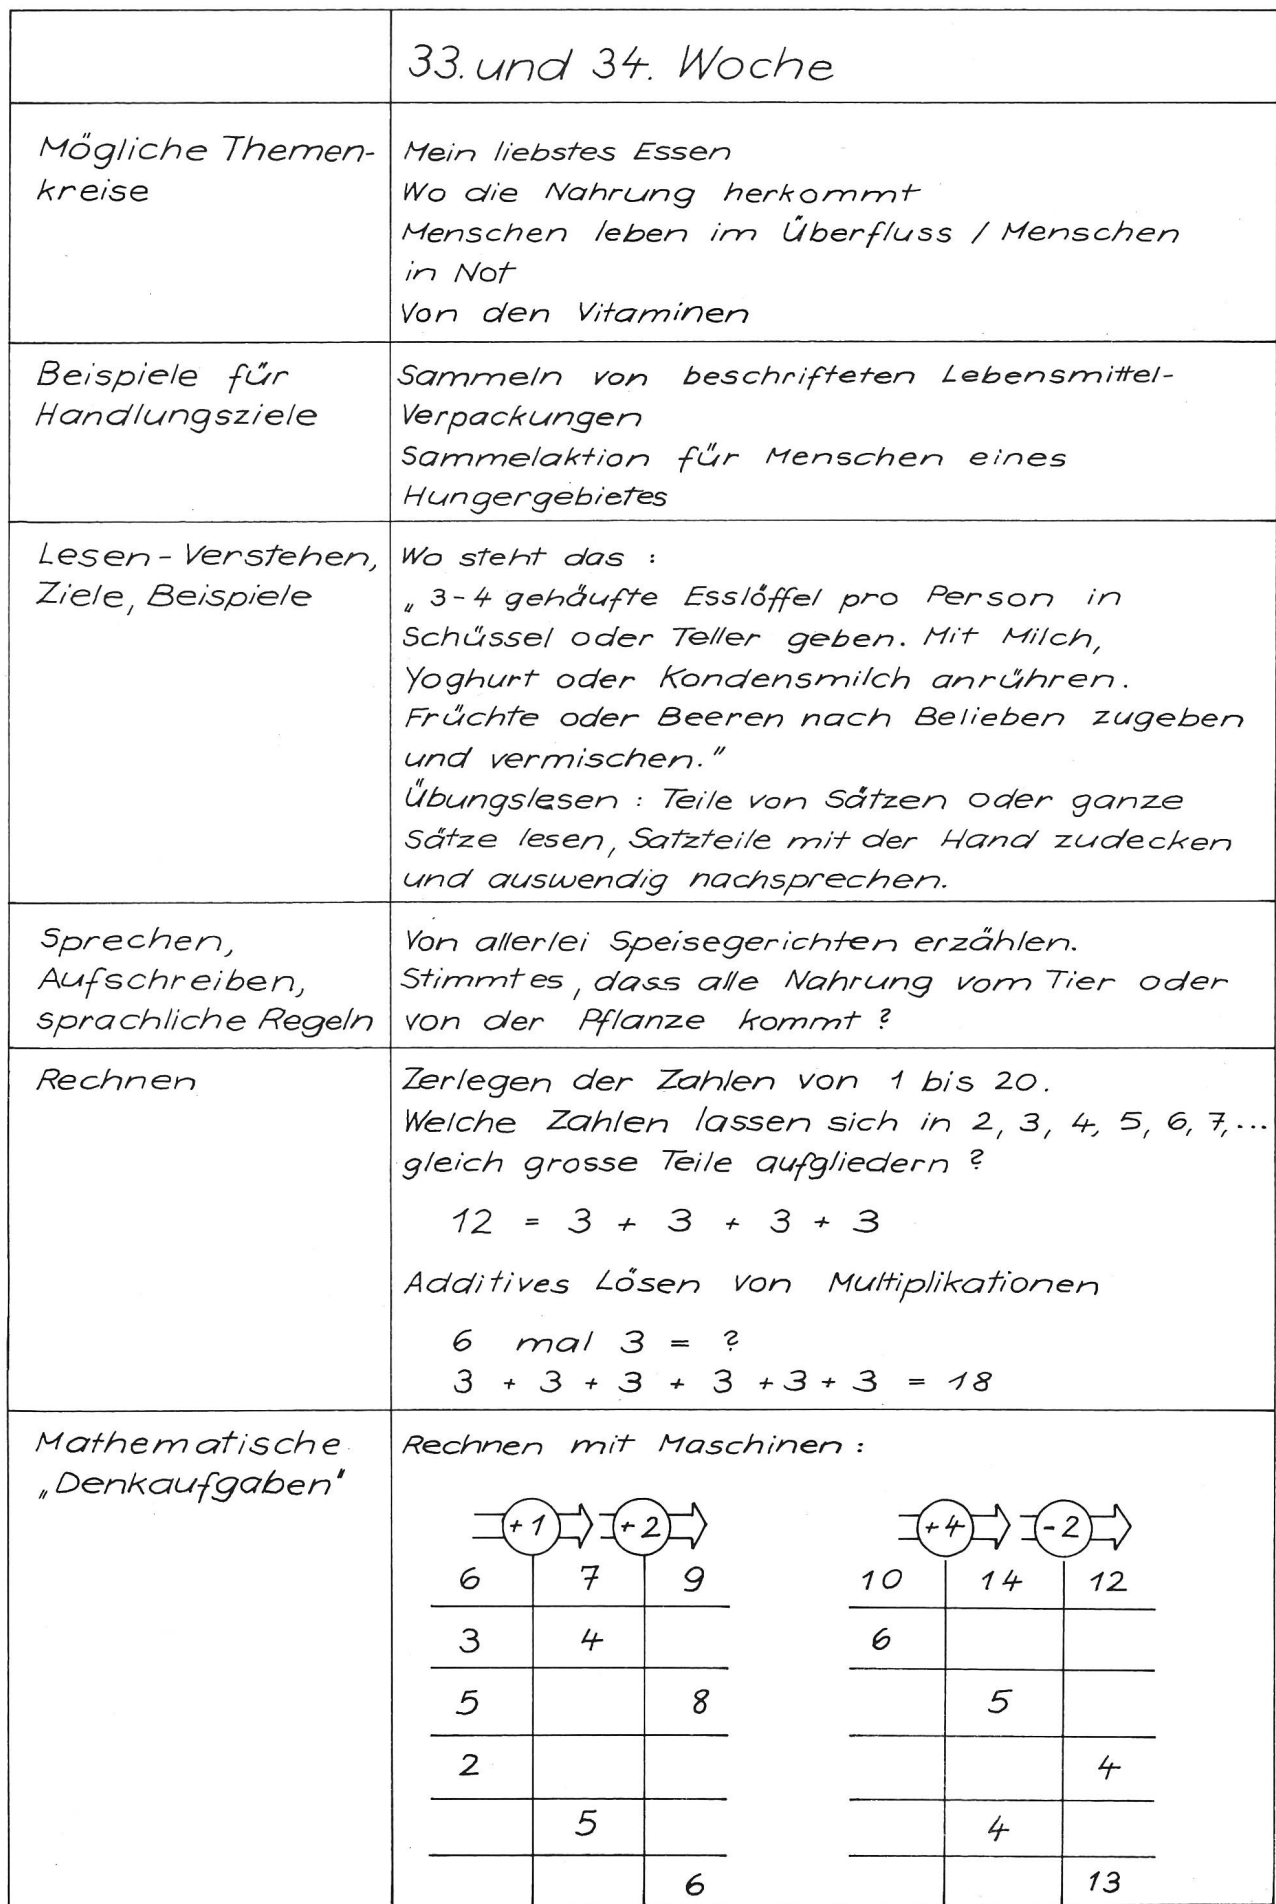 33. und 34. Woche
Mögliche Themen-
kreise
Mein liebstes Essen
Wo die Nahrung herkommt
Menschen leben im Überfluss / Menschen
in Not
Von den Vitaminen
Beispiele für
Handlungsziele
Sammeln von beschrifteten Lebensmittel-
Verpackungen
Sammelaktion für Menschen eines
Hungergebietes
Lesen - Verstehen,
Ziele, Beispiele
Wo steht das :
„ 3-4 gehäufte Esslöffel pro Person in
Schüssel oder Teller geben. Mit Milch,
Yoghurt oder Kondensmilch anrühren.
Früchte oder Beeren nach Belieben zugeben
und vermischen."
Übungslesen : Teile von Sätzen oder ganze
Sätze lesen, Satzteile mit der Hand zudecken
und auswendig nachsprechen.
Sprechen,
Aufschreiben,
sprachliche Regeln
Von allerlei Speisegerichten erzählen.
Stimmt es, dass alle Nahrung vom Tier oder
von der Pflanze kommt ?
Rechnen
Zerlegen der Zahlen von 1 bis 20.
Welche Zahlen lassen sich in 2, 3, 4, 5, 6, 7,...
gleich grosse Teile aufgliedern ?
12 = 3 + 3 + 3 + 3
Additives Lösen von Multiplikationen
6 mal 3 = ?
3 + 3 + 3 + 3 + 3 + 3 = 18
Mathematische
„Denkaufgaben"
Rechnen mit Maschinen :
+1 +2
6 7 9
3 4
5 8
2
5
6
+4 -2
10 14 12
6
5
4
4
13